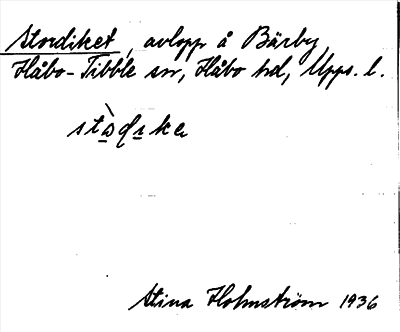 Stordiket, avlopp å Bärby,
Håbo-Tibble sn, Håbo hd, Upps. l.
Stina Holmström 1936